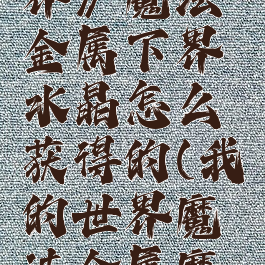 界》魔法
金属下界
水晶怎么
获得的(我
的世界魔
法金属魔